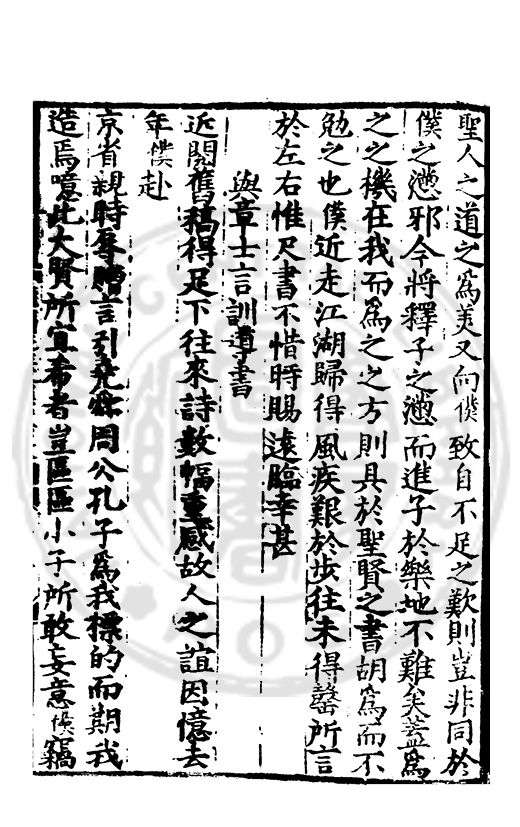 聖人之道之爲美又向僕致自不足之歎則豈非同於
僕之懑邪今將釋子之懑而進子於樂地不難矣蓋爲
之之機在我而爲之之方則具於聖賢之書胡爲而不
勉之也僕近走江湖歸得風疾艱於步往未得罄所言
於左右惟尺書不惜時賜遠臨幸甚
與章士言訓導書
近閱舊稿得足下往來詩數幅重感故人之誼因憶去
年僕赴
京省親時辱贈言引堯舜周公孔子爲我標的而期我
造焉噫此大賢所宜希者豈區區小子所敢妄意僕竊